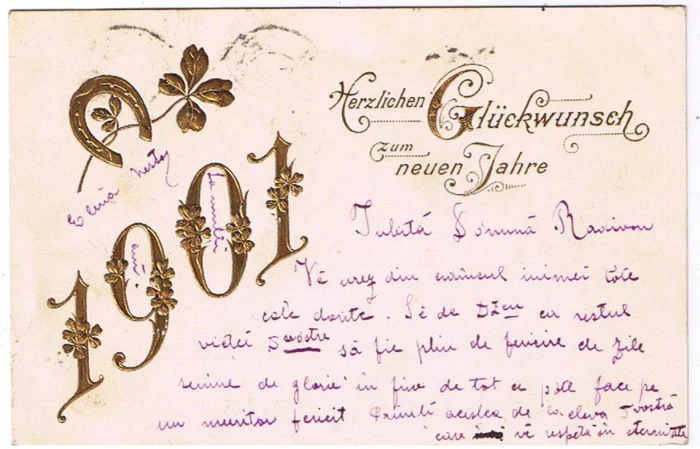 Herzlichen Glückwunsch
zum
neuen Jahre
1901
La multi
ani.
Iubită Domnă Radivon
Vĕ urez din adâncul inimei tote
cele dorite. Să de Dzeu ca restul
vieței Dvóstre să fie plin de fericire de zile
senine de glorie în fine de tot ce póte face pe
un muritor fericit Primiti acestea de la eleva Dvostră
care vĕ respetă în eternitate